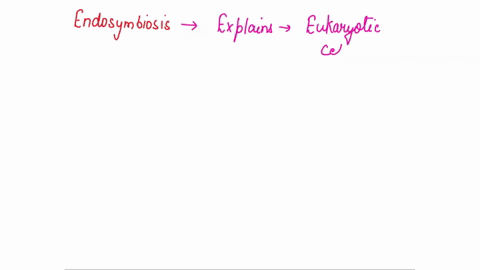 Endosymbiosis → Explains → Eukaryotic
ce